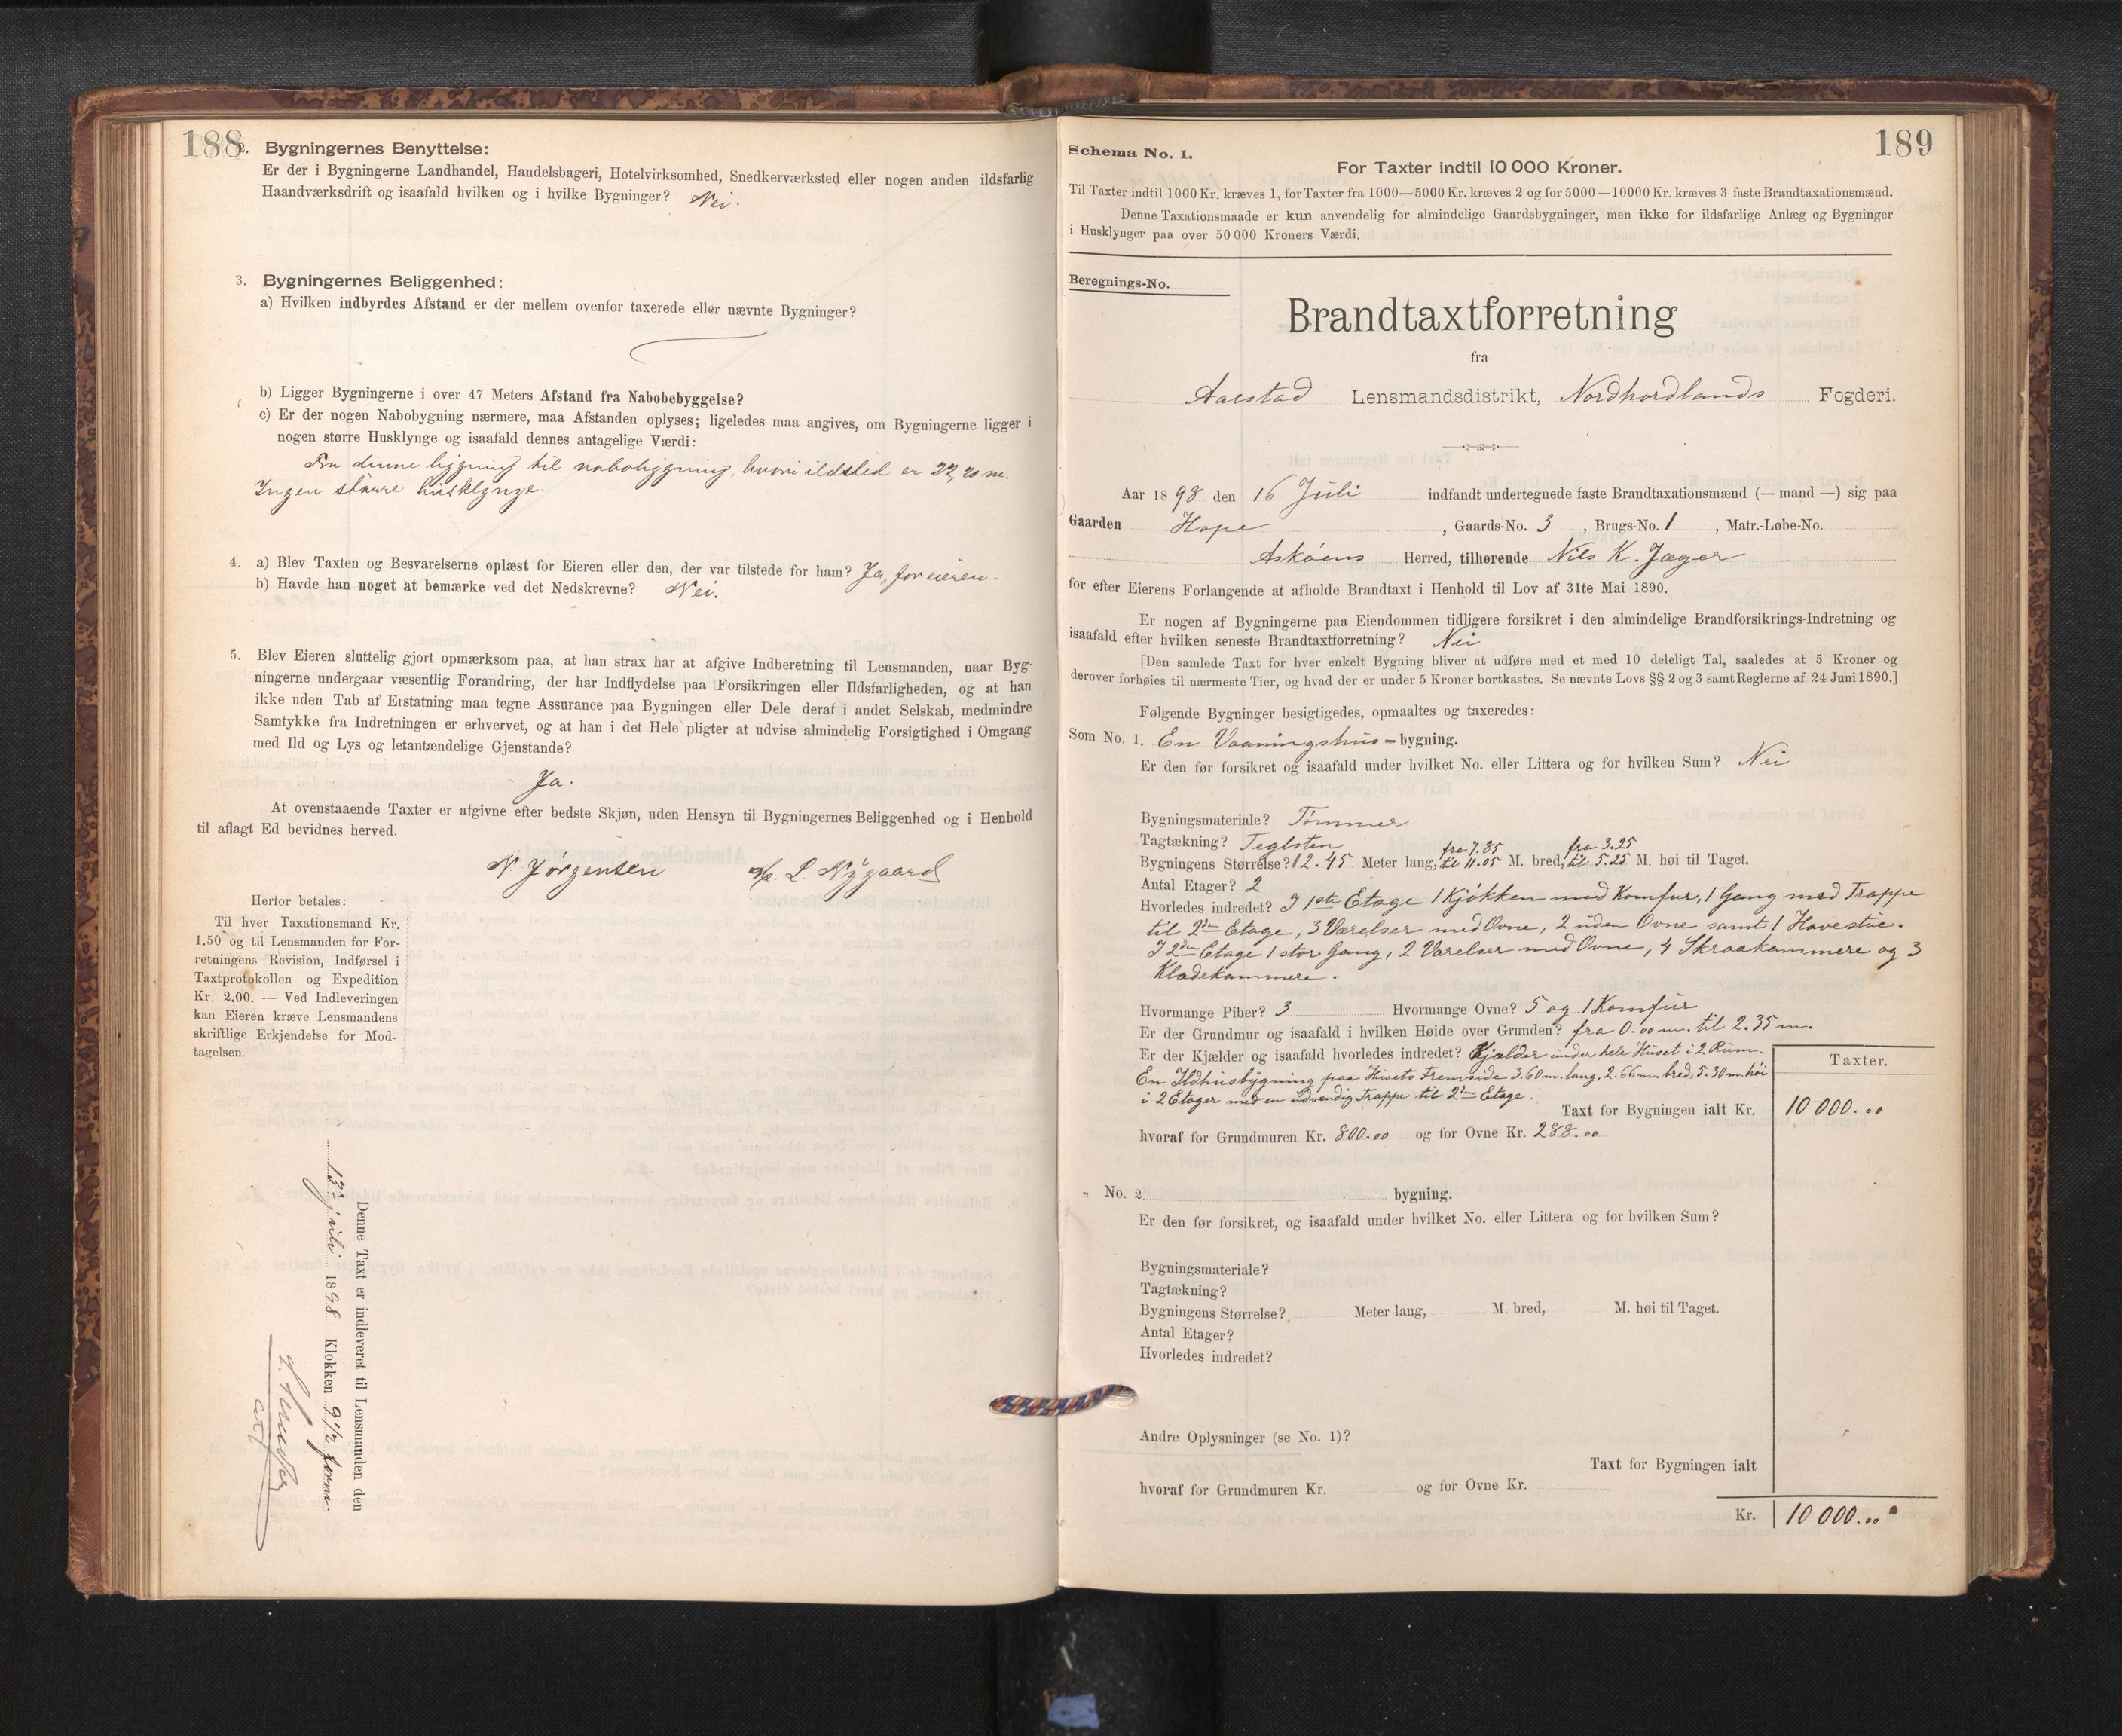 188
2. Bygningernes Benyttelse:
Er der i Bygningerne Landhandel, Handelsbageri, Hotelvirksomhed, Snedkerværksted eller nogen anden ildsfarlig
Haandværksdrift og isaafald hvilken og i hvilke Bygninger? Nei.
3. Bygningernes Beliggenhed:
a) Hvilken indbyrdes Afstand er der mellem ovenfor taxerede eller nævnte Bygninger?
b) Ligger Bygningerne i over 47 Meters Afstand fra Nabobebyggelse?
c) Er der nogen Nabobygning nærmere, maa Afstanden oplyses; ligeledes maa angives, om Bygningerne ligger i
nogen større Husklynge og isaafald dennes antagelige Værdi:
Fra denne bygning til nabobygning, hvori ildsted er 22,20 m.
Ingen større husklynge.
4. a) Blev Taxten og Besvarelserne oplæst for Eieren eller den, der var tilstede for ham? Ja, for eieren.
b) Havde han noget at bemærke ved det Nedskrevne? Nei.
5. Blev Eieren sluttelig gjort opmærksom paa, at han strax har at afgive Indberetning til Lensmanden, naar Byg-
ningerne undergaar væsentlig Forandring, der har Indflydelse paa Forsikringen eller Ildsfarligheden, og at han
ikke uden Tab af Erstatning maa tegne Assurance paa Bygningen eller Dele deraf i andet Selskab, medmindre
Samtykke fra Indretningen er erhvervet, og at han i det Hele pligter at udvise almindelig Forsigtighed i Omgang
med Ild og Lys og letantændelige Gjenstande?
Ja.
At ovenstaaende Taxter er afgivne efter bedste Skjøn, uden Hensyn til Bygningernes Beliggenhed og i Henhold
til aflagt Ed bevidnes herved.
N. Jørgensen L. Nygaard
Herfor betales:
Til hver Taxationsmand Kr.
1.50 og til Lensmanden for For-
retningens Revision, Indførsel i
Taxtprotokollen og Expedition
Kr. 2.00. — Ved Indleveringen
kan Eieren kræve Lensmandens
skriftlige Erkjendelse for Mod-
tagelsen.
Denne Taxt er indleveret til Lensmanden den
juli 1898 Klokken 9 1/2 form:
189
Schema No. 1.
For Taxter indtil 10 000 Kroner.
Til Taxter indtil 1000 Kr. kræves 1, for Taxter fra 1000—5000 Kr. kræves 2 og for 5000—10000 Kr. kræves 3 faste Brandtaxationsmænd.
Denne Taxationsmaade er kun anvendelig for almindelige Gaardsbygninger, men ikke for ildsfarlige Anlæg og Bygninger
i Husklynger paa over 50 000 Kroners Værdi.
Beregnings-No.
Brandtaxtforretning
fra
Aarstad Lensmandsdistrikt, Nordhordlands Fogderi.
Aar 1898 den 16 Juli indfandt undertegnede faste Brandtaxationsmænd (— mand —) sig paa
Gaarden Hope, Gaards-No. 3, Brugs-No. 1, Matr.-Løbe-No.
Askøens Herred, tilhørende Nils K. Jæger
for efter Eierens Forlangende at afholde Brandtaxt i Henhold til Lov af 31te Mai 1890.
Er nogen af Bygningerne paa Eiendommen tidligere forsikret i den almindelige Brandforsikrings-Indretning og
isaafald efter hvilken seneste Brandtaxtforretning? Nei
[Den samlede Taxt for hver enkelt Bygning bliver at udføre med et med 10 deleligt Tal, saaledes at 5 Kroner og
derover forhøies til nærmeste Tier, og hvad der er under 5 Kroner bortkastes. Se nævnte Lovs §§ 2 og 3 samt Reglerne af 24 Juni 1890.]
Følgende Bygninger besigtigedes, opmaaltes og taxeredes:
Som No. 1. En Vaaningshus-bygning.
Er den før forsikret og isaafald under hvilket No. eller Littera og for hvilken Sum? Nei
Bygningsmateriale? Tømmer
Tagtækning? Teglsten
fra 7.85 fra 3.25
Bygningens Størrelse? 12.45 Meter lang, til 11.05 M. bred, til 5.25 M. høi til Taget.
Antal Etager? 2
Hvorledes indredet? I 1ste Etage 1 Kjøkken med Komfur, 1 Gang med Trappe
til 2den Etage, 3 Værelser med Ovne, 2 uden Ovne samt 1 Havestue.
I 2den Etage 1 stor Gang, 2 Værelser med Ovne, 4 Skraakammere og 3
Klædekammere.
Hvormange Piber? 3 Hvormange Ovne? 5 og 1 Komfur
Er der Grundmur og isaafald i hvilken Høide over Grunden? fra 0.00 m. til 2.35 m.
Er der Kjælder og isaafald hvorledes indredet? Kjælder under hele Huset i 2 Rum.
En Ildhusbygning paa Husets Fremside 3.60 m. lang, 2.66 m. bred, 5.30 m. høi
i 2 Etager med en udvendig Trappe til 2den Etage.
Taxter.
Taxt for Bygningen ialt Kr. 10 000.00
hvoraf for Grundmuren Kr. 800.00 og for Ovne Kr. 288.00
„ No. 2 bygning.
Er den før forsikret, og isaafald under hvilket No. eller Littera og for hvilken Sum?
Bygningsmateriale?
Tagtækning?
Bygningens Størrelse? Meter lang, M. bred, M. høi til Taget.
Antal Etager?
Hvorledes indredet?
Andre Oplysninger (se No. 1)?
Taxt for Bygningen ialt
hvoraf for Grundmuren Kr. og for Ovne Kr.
Kr. 10 000.00